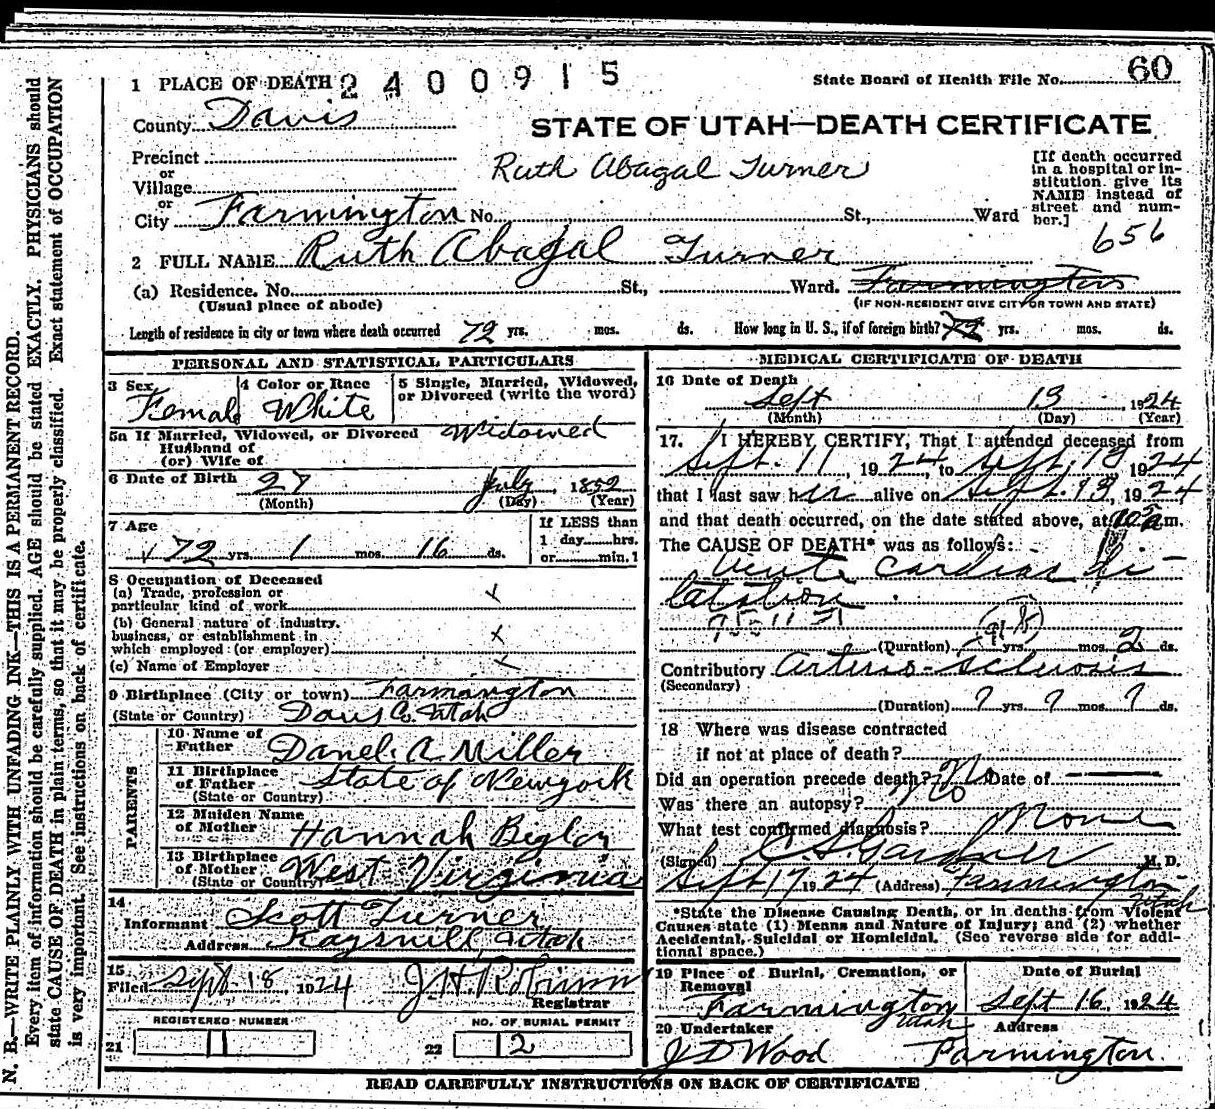 1 PLACE OF DEATH 2400915
State Board of Health File No. 60
County Davis
STATE OF UTAH—DEATH CERTIFICATE
Precinct
or
Village
or
City Farmington No. St., Ward
Ruth Abagal Turner
[If death occurred
in a hospital or in-
stitution. give its
NAME instead of
street and num-
ber.]
656
2 FULL NAME Ruth Abagal Turner
(a) Residence. No. St., Ward. Farmington
(Usual place of abode)
(IF NON-RESIDENT GIVE CITY OR TOWN AND STATE)
Length of residence in city or town where death occurred 72 yrs. mos. ds. How long in U. S., if of foreign birth? 72 yrs. mos. ds.
PERSONAL AND STATISTICAL PARTICULARS
3 Sex
Female
4 Color or Race
White
5 Single, Married, Widowed,
or Divorced (write the word)
Widowed
5a If Married, Widowed, or Divorced
Husband of
(or) Wife of
6 Date of Birth 27 July, 1852
(Month) (Day) (Year)
7 Age
72 yrs. 1 mos. 16 ds.
If LESS than
1 day hrs.
or min.
8 Occupation of Deceased
(a) Trade, profession or
particular kind of work
(b) General nature of industry.
business, or establishment in
which employed (or employer)
(c) Name of Employer
9 Birthplace (City or town) Farmangton
(State or Country) Davis Co. Utah
PARENTS
10 Name of
Father Danel. A. Miller
11 Birthplace
of Father State of Newyork
(State or Country)
12 Maiden Name
of Mother Hannah Bigler
13 Birthplace
of Mother West Virginia
(State or Country)
14
Informant Scott Turner
Address Kaysvill, Utah
15
Filed Sept. 18, 1924 J H Robinson
Registrar
REGISTERED NUMBER
21
NO. OF BURIAL PERMIT
22 12
MEDICAL CERTIFICATE OF DEATH
16 Date of Death
Sept 13 1924
(Month) (Day) (Year)
17. I HEREBY CERTIFY, That I attended deceased from
Sept. 11, 1924, to Sept. 13 1924
that I last saw her alive on Sept. 13, 1924
and that death occurred, on the date stated above, at m.
The CAUSE OF DEATH* was as follows:
Acute cardiac di-
latation
(Duration) yrs. mos. 2 ds.
Contributory Arterio-sclerosis
(Secondary)
(Duration) ? yrs. ? mos. ? ds.
18 Where was disease contracted
if not at place of death?
Did an operation precede death? No Date of
Was there an autopsy? No
What test confirmed diagnosis? None
(Signed) C. S. Gardner M. D.
Sept 17 1924 (Address) Farmington
Utah
*State the Disease Causing Death, or in deaths from Violent
Causes state (1) Means and Nature of Injury; and (2) whether
Accidental, Suicidal or Homicidal. (See reverse side for addi-
tional space.)
19 Place of Burial, Cremation, or
Removal
Farmington
Utah
Date of Burial
Sept 16, 1924
20 Undertaker
J D Wood
Address
Farmington.
READ CAREFULLY INSTRUCTIONS ON BACK OF CERTIFICATE
N. B.—WRITE PLAINLY WITH UNFADING INK—THIS IS A PERMANENT RECORD.
Every item of information should be carefully supplied. AGE should be stated EXACTLY. PHYSICIANS should
state CAUSE OF DEATH in plain terms, so that it may be properly classified. Exact statement of OCCUPATION
is very important. See instructions on back of certificate.